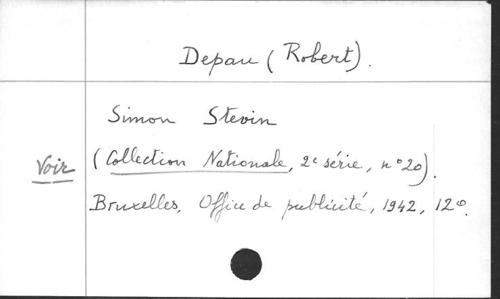 Depau (Robert).
Simon Stevin
Voir (Collection Nationale, 2e série, n° 20).
Bruxelles, Office de publicité, 1942, 12°.